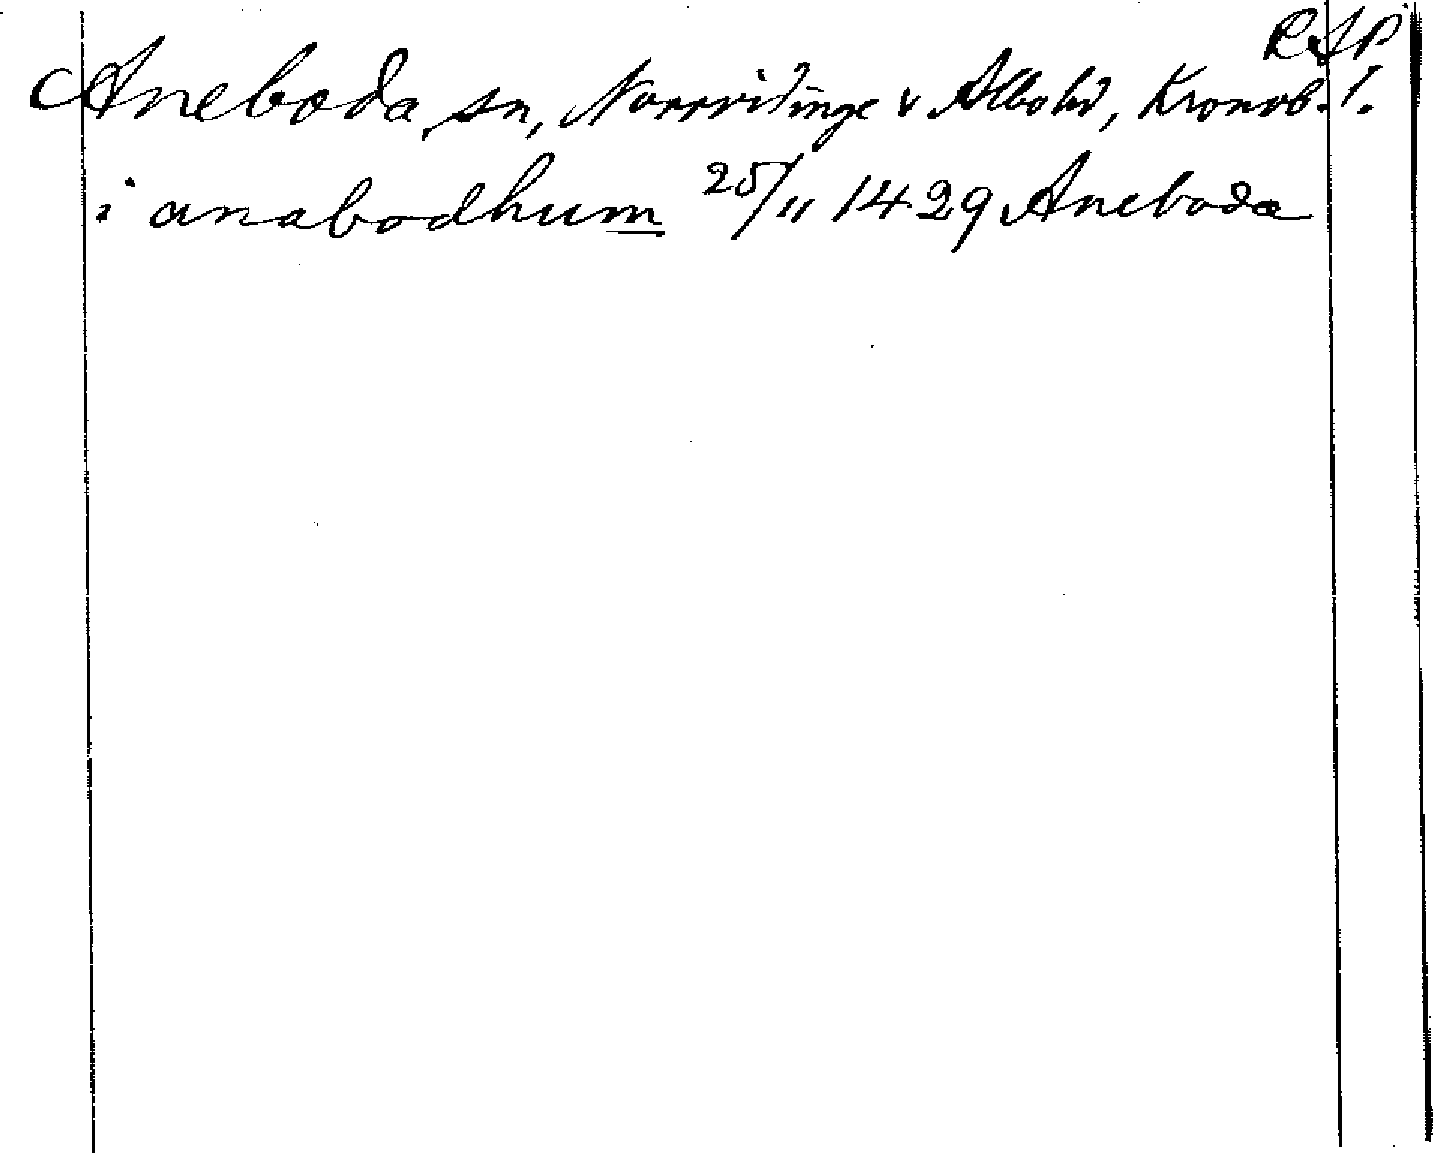 RAP
Aneboda, sn, Norrvidinge & Albohd, Kronob. l.
i anabodhum 25/11 1429 Aneboda